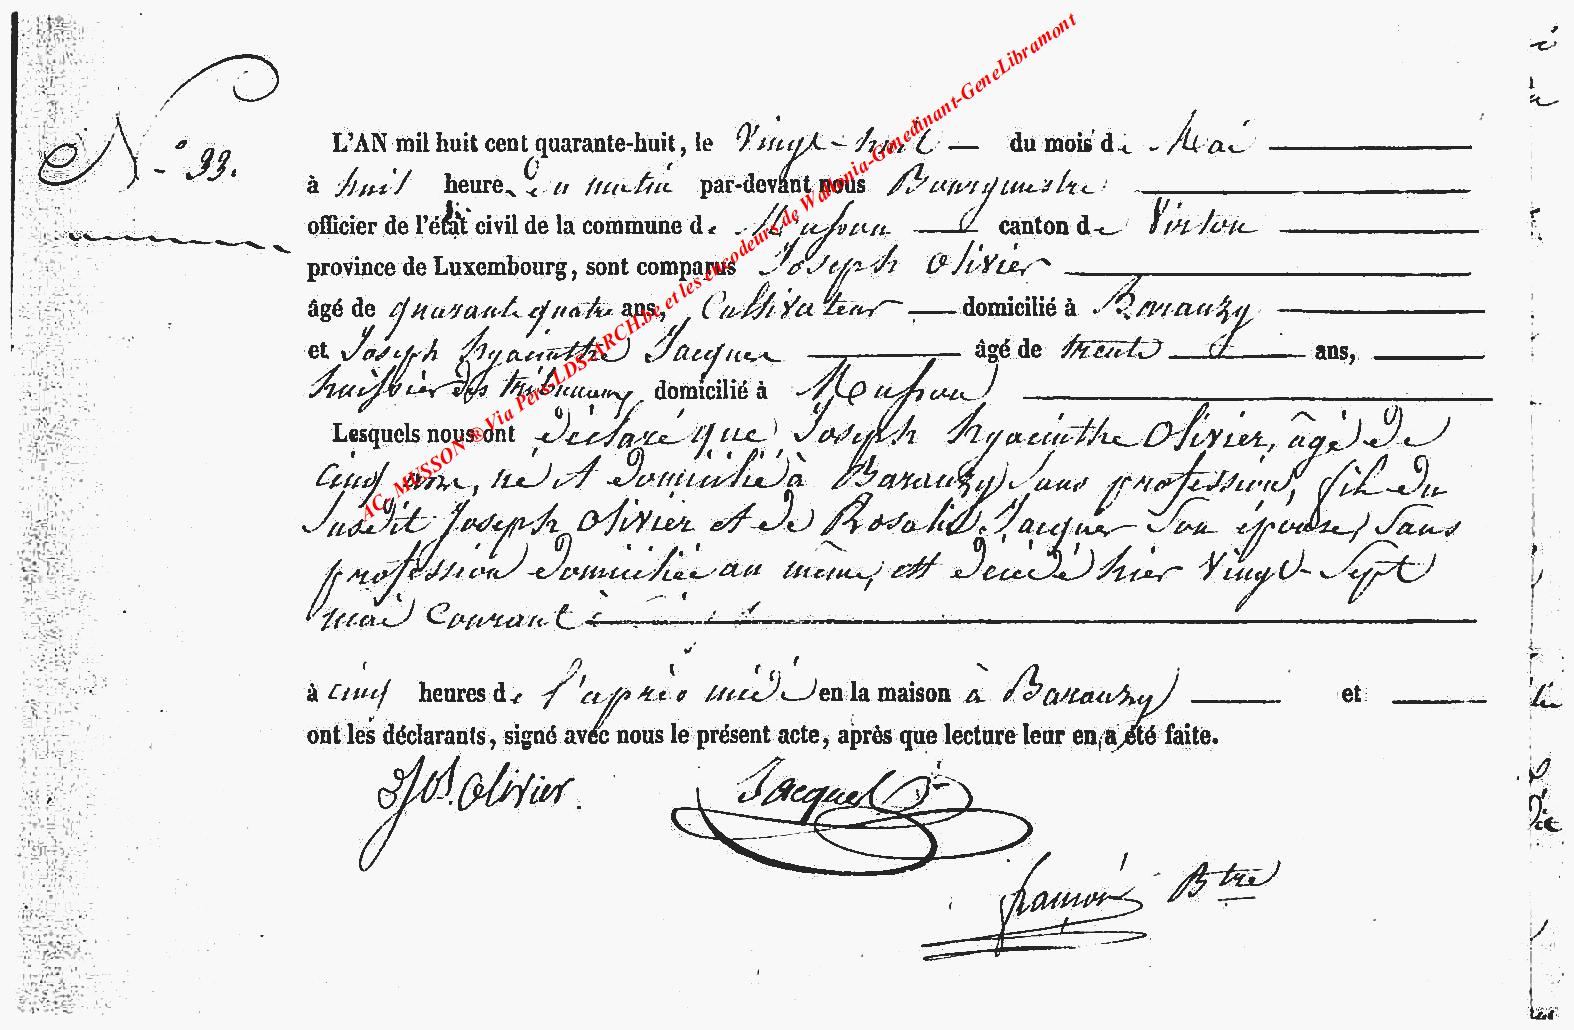 N.° 33.
L'AN mil huit cent quarante-huit, le Vingt-huit du mois de Mai
à huit heures du matin par-devant nous Bourgmestre
officier de l'état civil de la commune de Musson canton de Virton
province de Luxembourg, sont comparus Joseph Olivier
âgé de quarante quatre ans, Cultivateur domicilié à Baranzy
et Joseph Hyacinthe Jacques âgé de trente ans,
huissier des tribunaux domicilié à Musson
Lesquels nous ont déclaré que Joseph Hyacinthe Olivier, âgé de
cinq ans, né et domicilié à Baranzy sans profession, fils du
susdit Joseph Olivier et de Rosalie Jacques son épouse, sans
profession domiciliée au même, est décédé hier vingt-sept
mai courant
à cinq heures de l'après midi en la maison à Baranzy et
ont les déclarants, signé avec nous le présent acte, après que lecture leur en a été faite.
Jos. Olivier.
Jacques
Btre
AC- MUSSON ® Via Pers-LDS-ARCH.be et les encodeurs de Wallonia-Genedinant-GeneLibramont